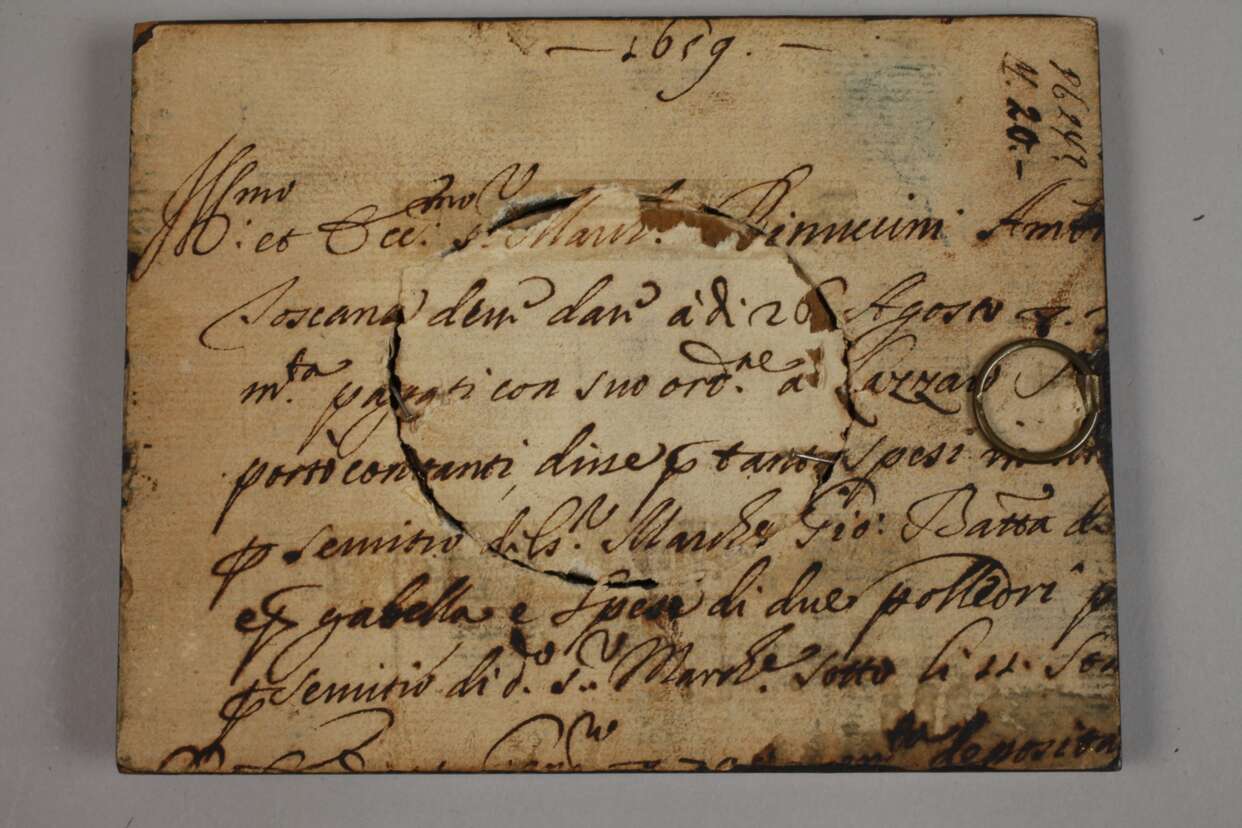 — 1659. —
96249
N. 20.—
Ill.mo et Ecc.mo S.r March. Rinuccini Amb
Toscana den.o dare à di 26 Agosto
m.ta pagati con suo ord.ne a Lazzaro
portò contanti, disse p tanti spesi in
p servitio di S.r March.e Gio: Batta de
e p gabella e spese di due polledri p
p servitio di d.o S.r March.e sotto li 11.
deposita